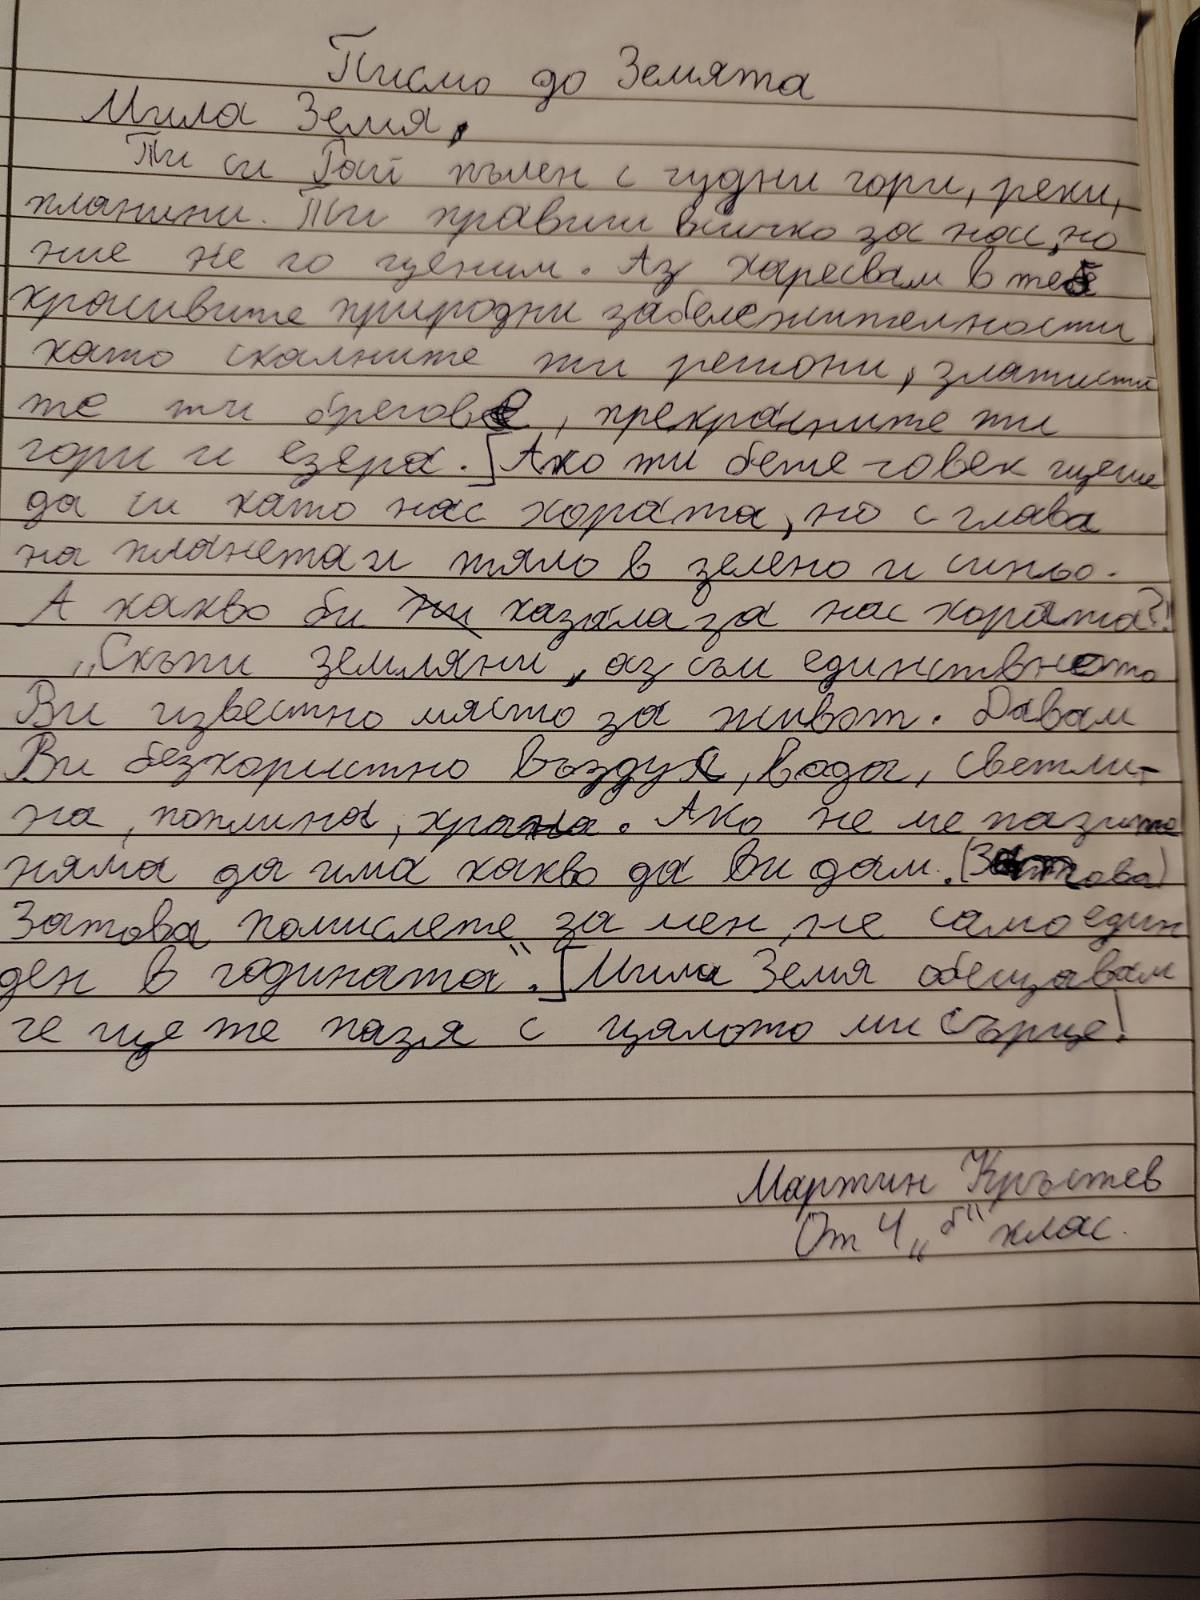 Писмо до Земята
Мила Земя,
Ти си Рай пълен с чудни гори, реки,
планини. Ти правиш всичко за нас, но
ние не го ценим. Аз харесвам в теб
красивите природни забележителности
като скалните ти региони, златисти
те ти брегове, прекрасните ти
гори и езера.] Ако ти беше човек щеше
да си като нас хората, но с глава
на планета и тяло в зелено и синьо.
А какво би казала за нас хората?!
„Скъпи земляни, аз съм единствното
Ви известно място за живот. Давам
Ви безкористно въздух, вода, светли-
на, топлина, храна. Ако не ме пазите
няма да има какво да Ви дам. (Затова)
Затова помислете за мен, не само един
ден в годината“.] Мила Земя обещавам
че ще те пазя с цялото ми сърце!
Мартин Кръстев
От 4 „б“ клас.